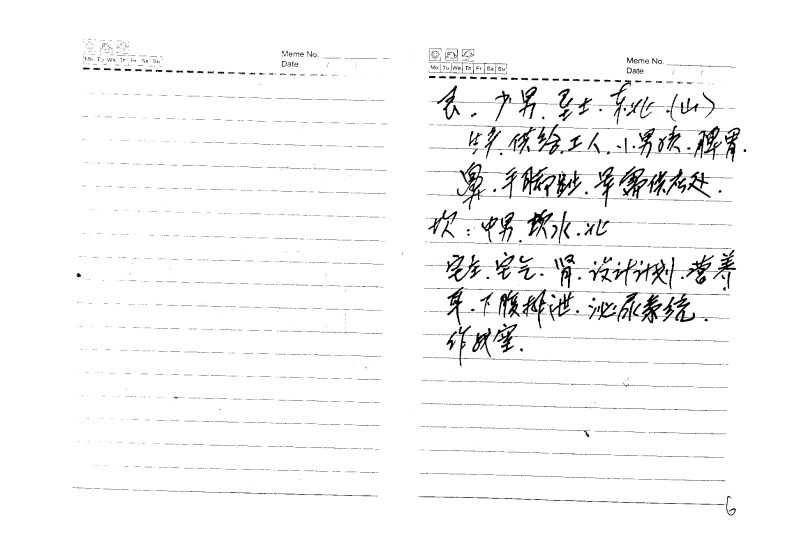 Meme No.
Mo Tu We Th Fr Sa Su
Date / /
Meme No.
Mo Tu We Th Fr Sa Su
Date / /
艮. 少男. 土. 东北.(山)
供给. 工人. 小男孩. 脾胃.
鼻. 手脚趾. 军需供应处.
坎: 中男. 坎水. 北
宅主. 宅气. 肾. 设计计划. 营养
耳. 下腹排泄. 泌尿系统.
作战室.
6